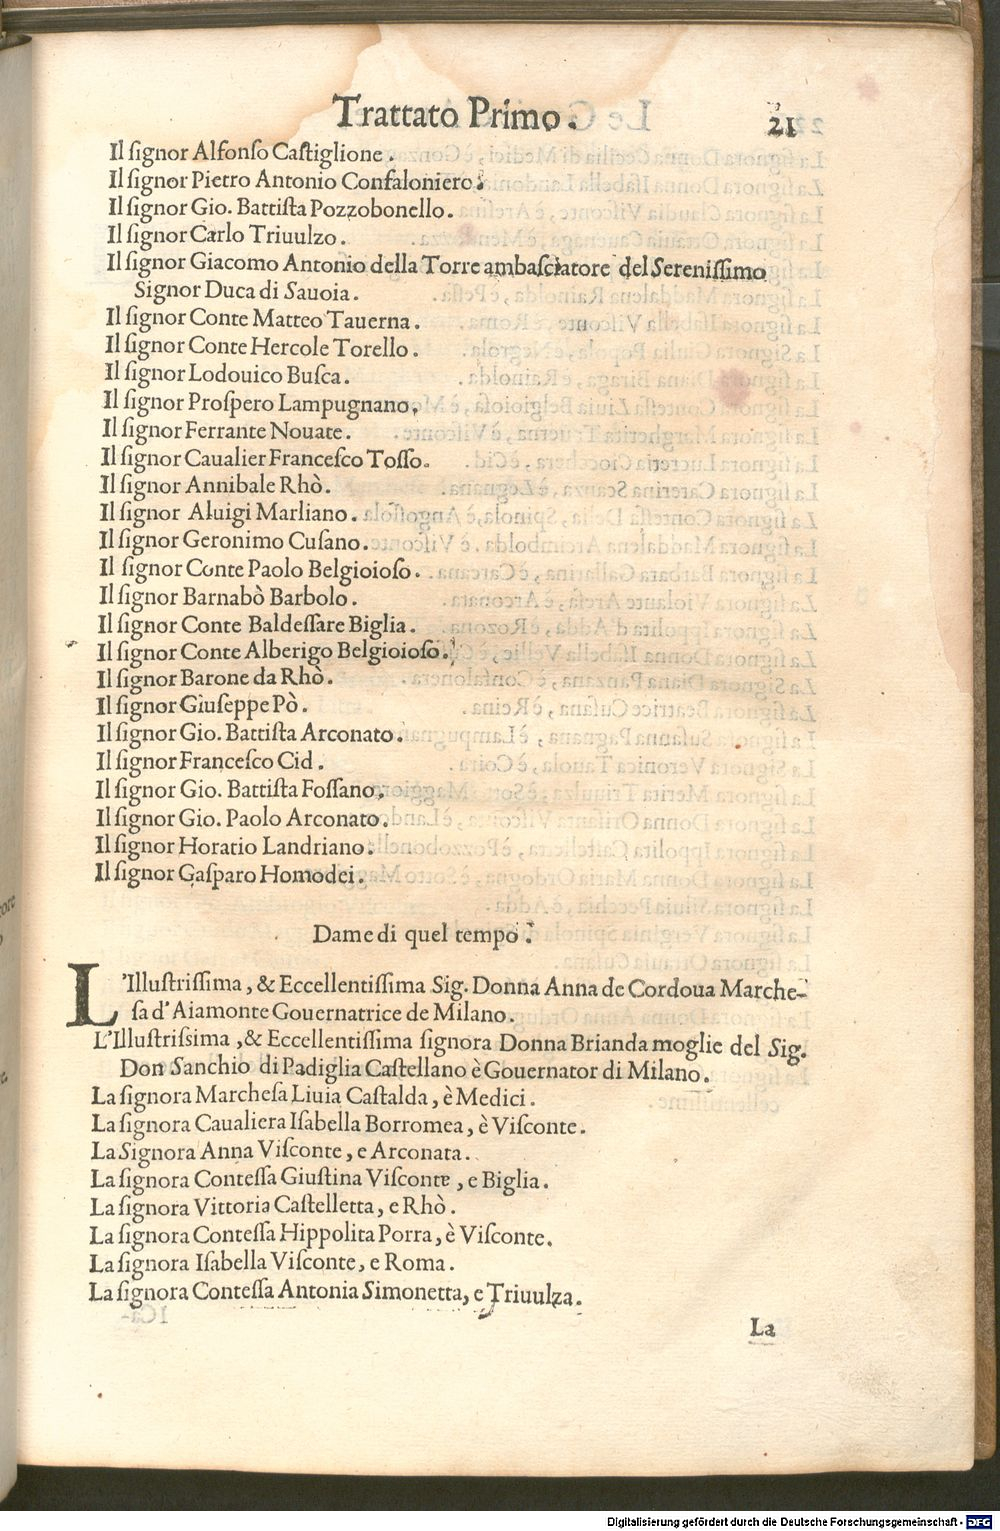 Trattato Primo. 21
Il ſignor Alfonſo Caſtiglione.
Il ſignor Pietro Antonio Confaloniero.
Il ſignor Gio. Battiſta Pozzobonello.
Il ſignor Carlo Triuulzo.
Il ſignor Giacomo Antonio della Torre ambaſciatore del Sereniſſimo
Signor Duca di Sauoia.
Il ſignor Conte Matteo Tauerna.
Il ſignor Conte Hercole Torello.
Il ſignor Lodouico Buſca.
Il ſignor Proſpero Lampugnano.
Il ſignor Ferrante Nouate.
Il ſignor Caualier Franceſco Toſſo.
Il ſignor Annibale Rhò.
Il ſignor Aluigi Marliano.
Il ſignor Geronimo Cuſano.
Il ſignor Conte Paolo Belgioioſo.
Il ſignor Barnabò Barbolo.
Il ſignor Conte Baldeſſare Biglia.
Il ſignor Conte Alberigo Belgioioſo.
Il ſignor Barone da Rhò.
Il ſignor Giuſeppe Pò.
Il ſignor Gio. Battiſta Arconato.
Il ſignor Franceſco Cid.
Il ſignor Gio. Battiſta Foſſano.
Il ſignor Gio. Paolo Arconato.
Il ſignor Horatio Landriano.
Il ſignor Gaſparo Homodei.
Dame di quel tempo.
L'Illuſtriſſima, & Eccellentiſſima Sig. Donna Anna de Cordoua Marche-
ſa d'Aiamonte Gouernatrice de Milano.
L'Illuſtriſsima, & Eccellentiſſima ſignora Donna Brianda moglie del Sig.
Don Sanchio di Padiglia Caſtellano è Gouernator di Milano.
La ſignora Marcheſa Liuia Caſtalda, è Medici.
La ſignora Caualiera Iſabella Borromea, è Viſconte.
La Signora Anna Viſconte, e Arconata.
La ſignora Conteſſa Giuſtina Viſconte, e Biglia.
La ſignora Vittoria Caſtelletta, e Rhò.
La ſignora Conteſſa Hippolita Porra, è Viſconte.
La ſignora Iſabella Viſconte, e Roma.
La ſignora Conteſſa Antonia Simonetta, e Triuulza.
La
Digitalisierung gefördert durch die Deutsche Forschungsgemeinschaft - DFG